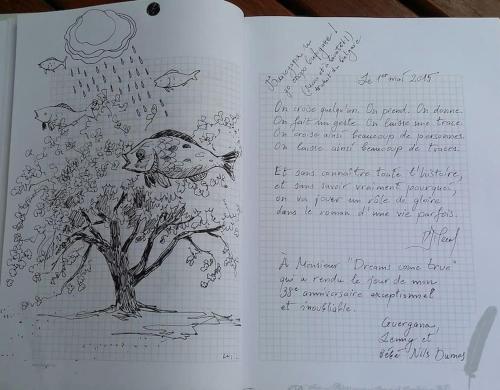 Le 1er mai 2015
On croise quelqu'un. On prend. On donne.
On fait un geste. On laisse une trace.
On croise ainsi beaucoup de personnes.
On laisse ainsi beaucoup de traces.
Et sans connaître toute l'histoire,
et sans savoir vraiment pourquoi,
on va jouer un rôle de gloire
dans le roman d'une vie parfois.
À Monsieur "Dreams come true"
qui a rendu le jour de mon
38e anniversaire exceptionnel
et inoubliable.
Guergana,
Jenny et
bébé Nils Dumas